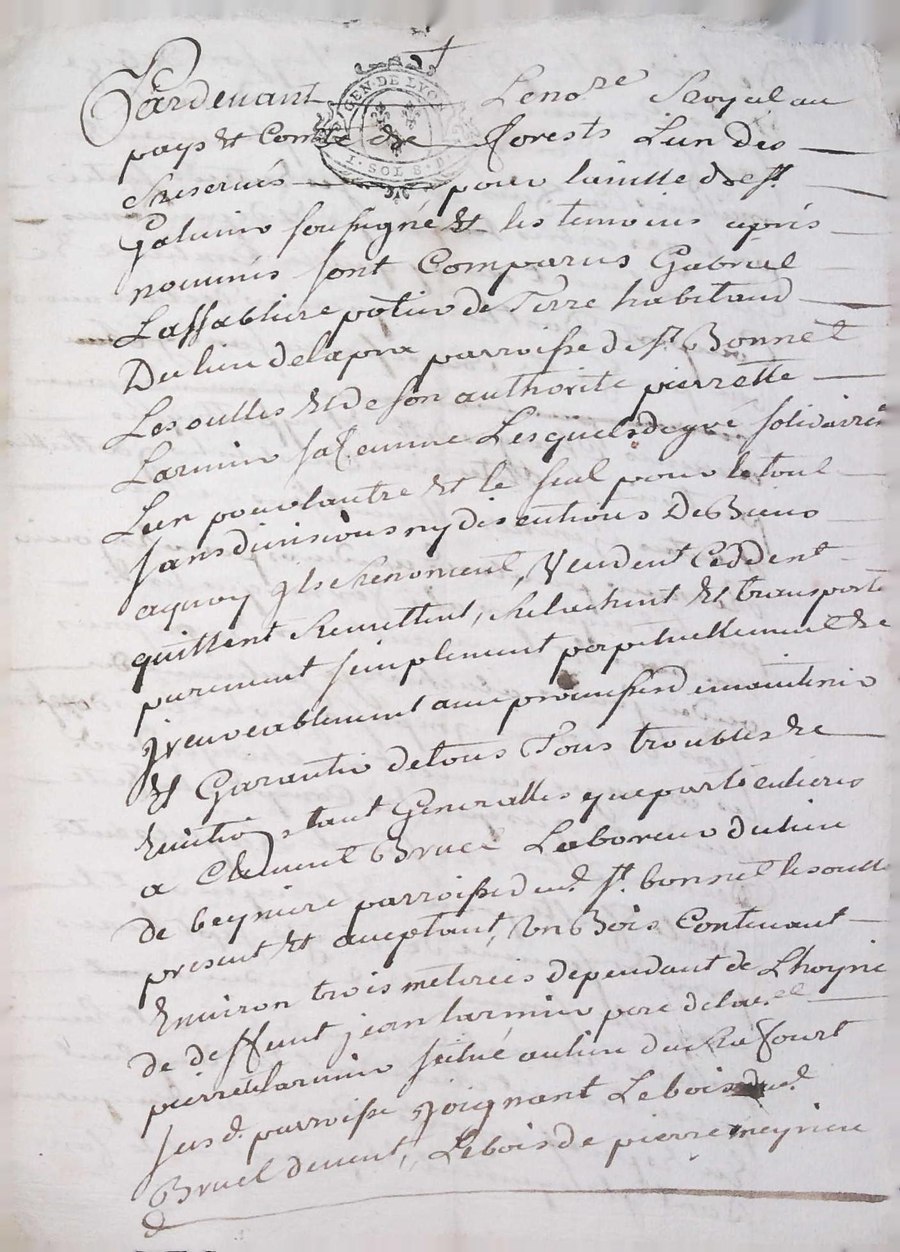 Pardevant Le no.re Royal au
GEN DE LYON
1. SOL 8 D.
pays et Comté de forests L'un des
Reservés pour la ville de st
Galmier soussigné et les temoins aprés
nommés sont Comparus Gabriel
Laffabliere potier de Terre habitant
Du lieu de la pra parroisse de st Bonnet
Les oulles et de son authorité pierrette
Larmier sa femme Lesquels de gré solidaires
L'un pour lautre et le seul pour le tout
sans divisions ny discutions De Biens
a quoy jls Renoncent, Vendent Ceddent
quittent Remettent, Relachent et transporte
purement simplement perpetuellement &
jrevocablement avec promesse de maintenir
et Garantir de tous Tous troubles &
Eviction, tant Generalles que particulieres
a Clement Bruel Laboureur du lieu
de beyniere parroisse dud. st. bonnet les oulle
present et aceptant, Un Bois Contenant
Environ trois meterées dependant de Lhoyrie
de deffunt jean larmier pere de la
pierrette larmier scitué au lieu du
susd. parroisse joignant Le bois dud.
Bruel devent, Le bois de pierre meynieu